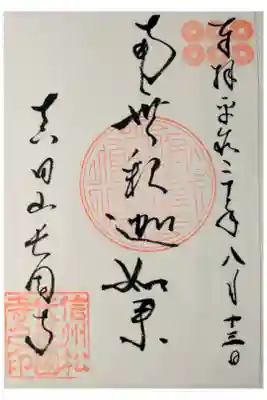 奉拝 平成二十年八月十三日
南無釈迦如来
真田山長国寺
信州松
寺之印